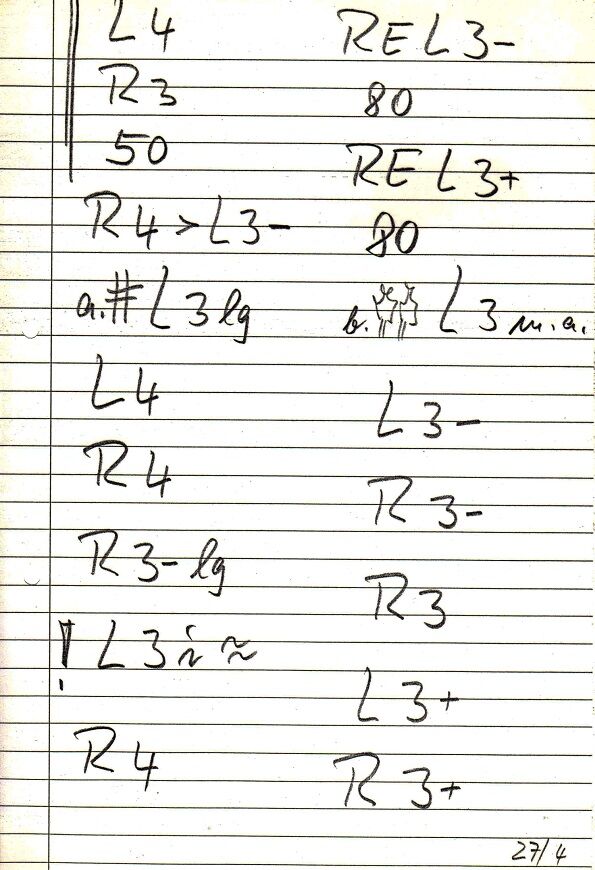 L4
R3
50
R4>L3-
a.# L3 lg
L4
R4
R3- lg
! L3 i ≈
R4
REL3-
80
REL3+
80
b. L3 m.a.
L3-
R3-
R3
L3+
R3+
27/4